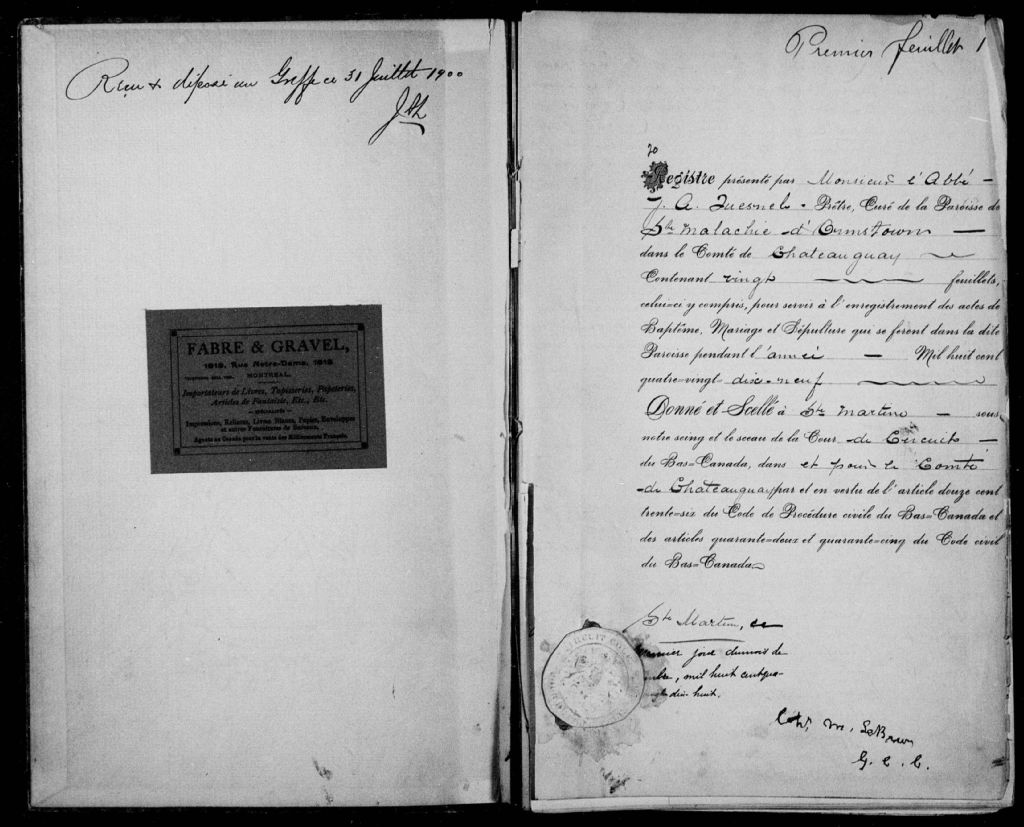 Reçu & déposé au Greffe ce 31 Juillet 1900
FABRE & GRAVEL,
1619, Rue Notre-Dame, 1619
MONTREAL.
Importateurs de Livres, Tapisseries, Papeteries,
Articles de Fantaisie, Etc., Etc.
— SPÉCIALITÉS —
Impressions, Reliures, Livres Blancs, Papier, Enveloppes
et autres Fournitures de Bureaux.
Agents au Canada pour la vente des
Premier feuillet 1
Registre présenté par Monsieur l'Abbé —
J. A. Quesnel - Prêtre, Curé de la Paroisse de
Ste Malachie - d'Ormstown —
dans le Comté de Chateauguay
Contenant vingt feuillets,
celui=ci y compris, pour servir à l'enregistrement des actes de
Baptême, Mariage et Sépulture qui se feront dans la dite
Paroisse pendant l'année — Mil huit cent
quatre=vingt dix=neuf
Donné et Scellé à Ste Martine — sous
notre seing et le sceau de la Cour de Circuit —
du Bas=Canada, dans et pour le Comté
de Chateauguay par et en vertu de l'article douze cent
trente=six du Code de Procédure civile du Bas=Canada et
des articles quarante=deux et quarante=cinq du Code civil
du Bas=Canada.
Ste Martine, ce
premier jour du mois de
mil huit cent
dix-huit.
G. C. C.